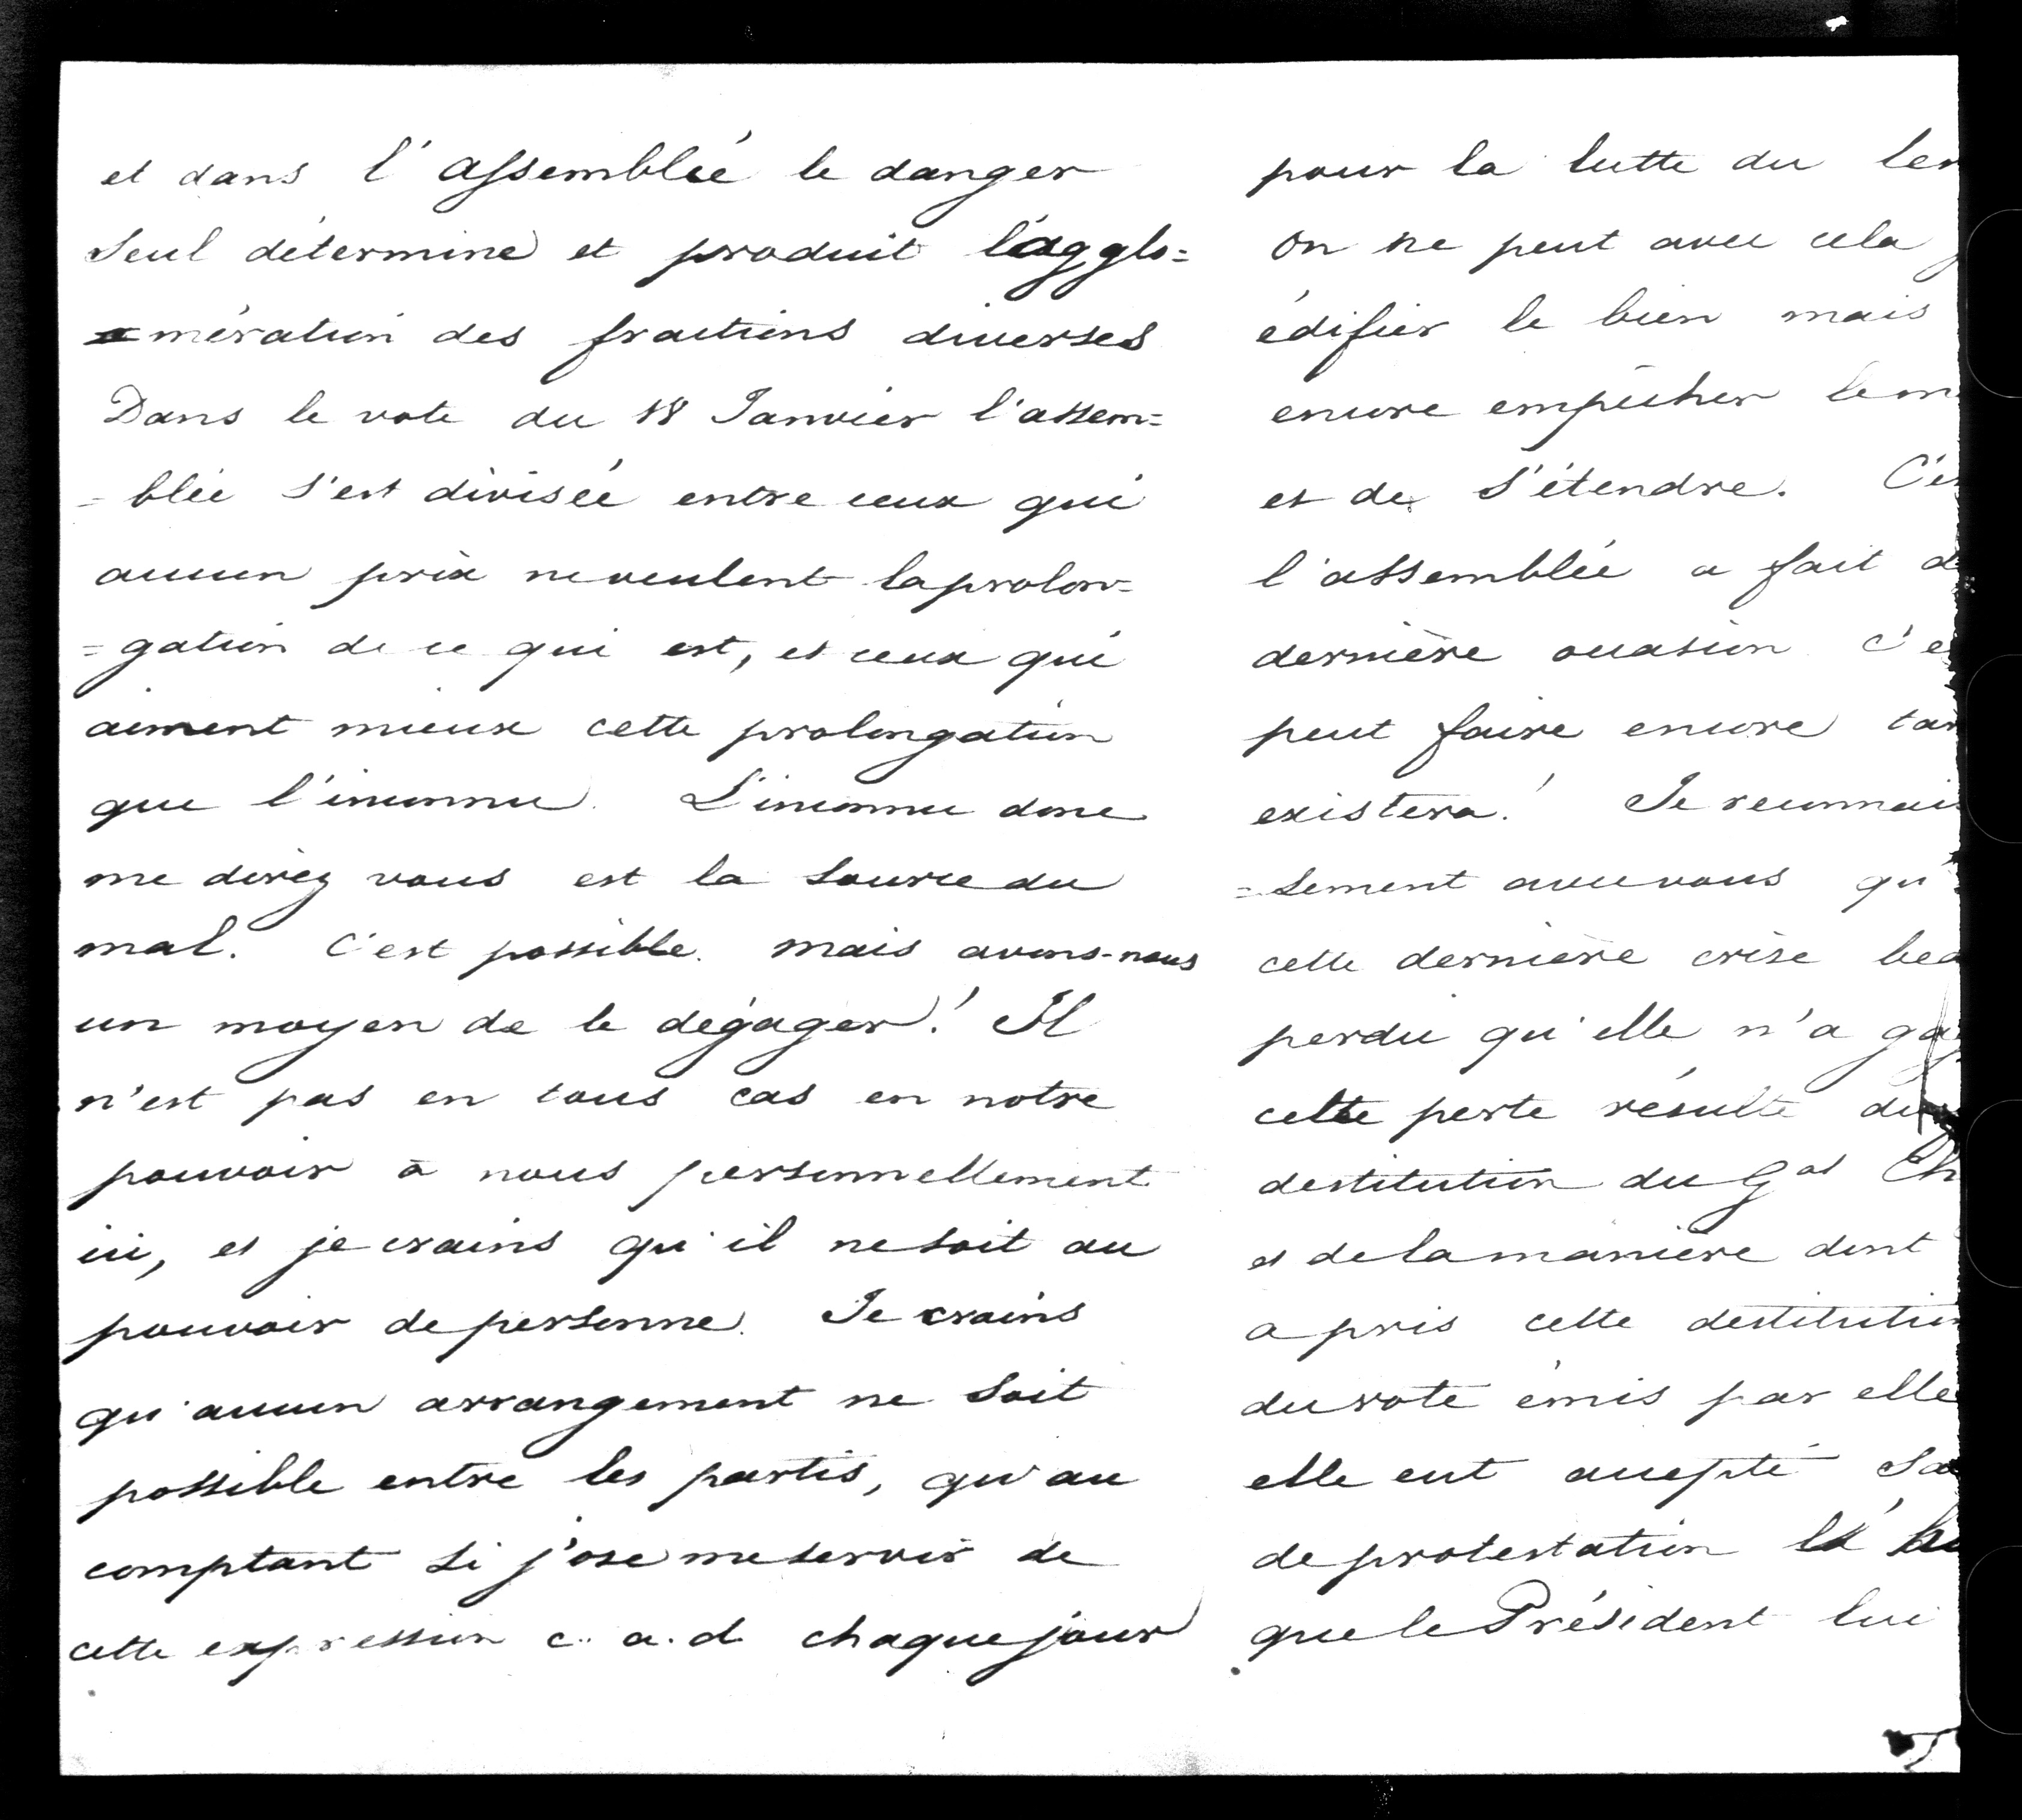 et dans l'assemblée le danger
seul détermine et produit l'agglo=
=mération des fractions diverses
Dans le vote du 18 Janvier l'assem=
=blée s'est divisée entre ceux qui
aucun prix ne veulent la prolon=
=gation de ce qui est, et ceux qui
aiment mieux cette prolongation
que l'inconnu. L'inconnu donc
me direz vous est la source du
mal. C'est possible. mais avons-nous
un moyen de le dégager! Il
n'est pas en tous cas en notre
pouvoir à nous personnellement
ici, et je crains qu'il ne soit au
pouvoir de personne. Je crains
qu'aucun arrangement ne soit
possible entre les partis, qu'au
comptant si j'ose me servir de
cette expression c. a. d. chaque jour
pour la lutte du
on ne peut avec cela
édifier le bien mais
encore empêcher le
et de s'étendre.
l'assemblée a fait
dernière occasion
peut faire encore
existera! Je reconnais
=sement avec vous
cette dernière crise
perdu qu'elle n'a
cette perte résulte
destitution du Gal
et de la manière dont
a pris cette destitution
du vote émis par elle
elle eut accepté
de protestation
que le Président lui